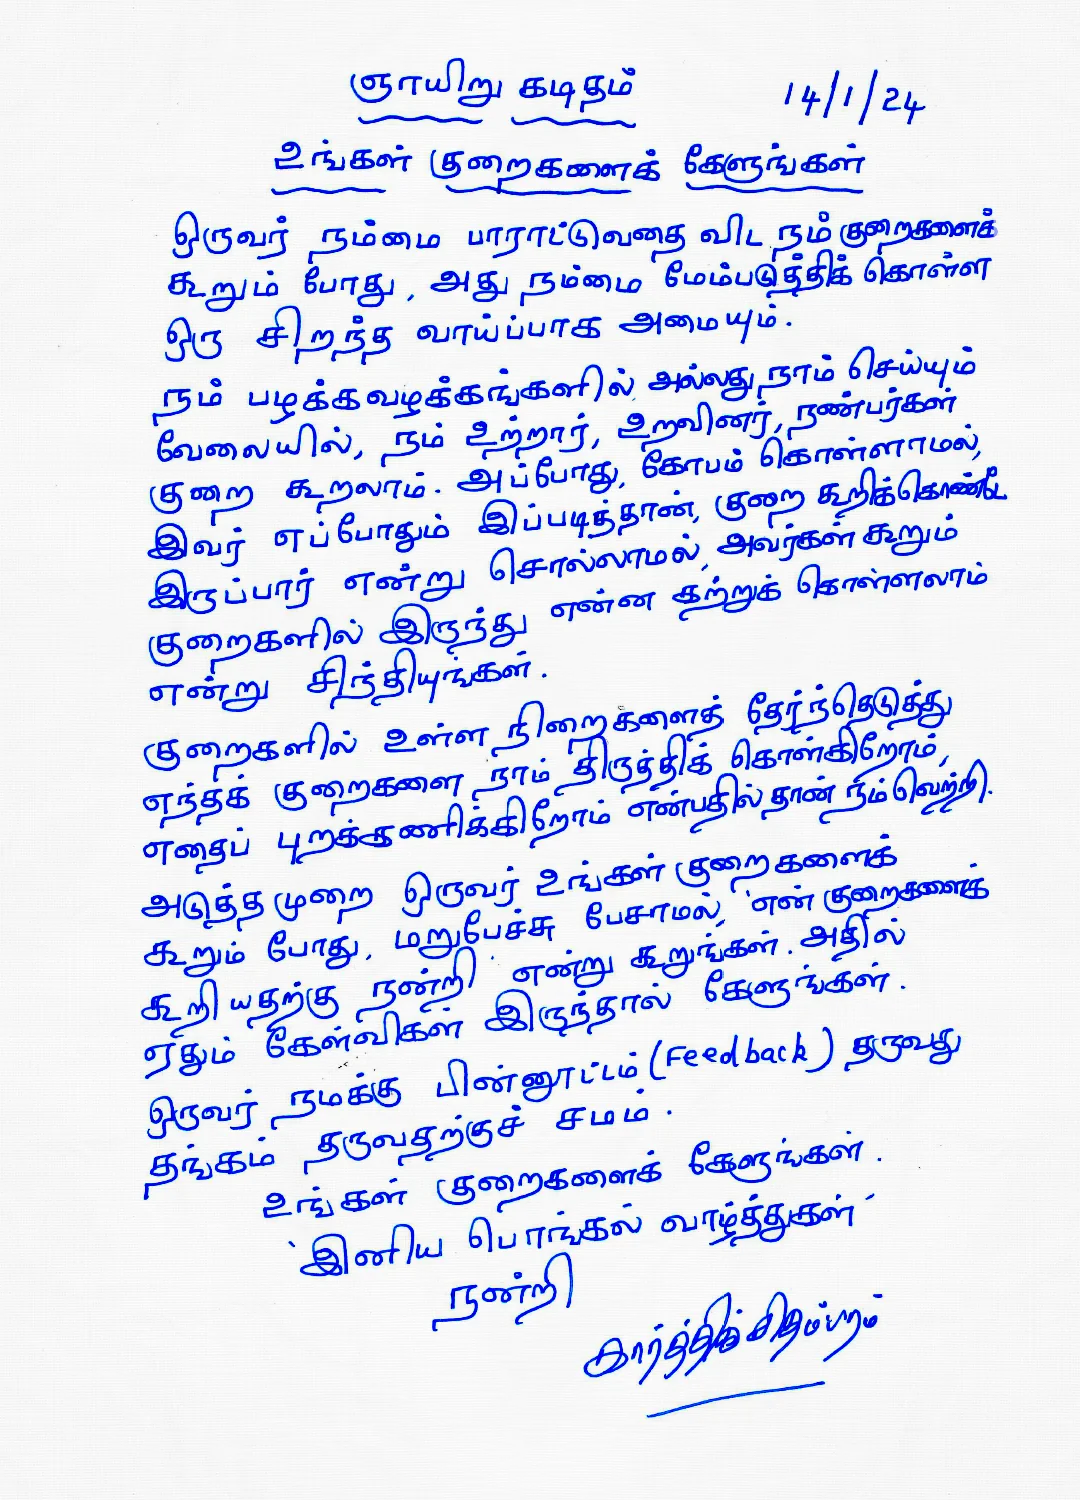 ஞாயிறு கடிதம்
14/1/24
உங்கள் குறைகளைக் கேளுங்கள்
ஒருவர் நம்மை பாராட்டுவதை விட நம் குறைகளைக்
கூறும் போது, அது நம்மை மேம்படுத்திக் கொள்ள
ஒரு சிறந்த வாய்ப்பாக அமையும்.
நம் பழக்கவழக்கங்களில், அல்லது நாம் செய்யும்
வேலையில், நம் உற்றார், உறவினர், நண்பர்கள்
குறை கூறலாம். அப்போது, கோபம் கொள்ளாமல்,
இவர் எப்போதும் இப்படித்தான், குறை கூறிக்கொண்டே
இருப்பார் என்று சொல்லாமல், அவர்கள் கூறும்
குறைகளில் இருந்து என்ன கற்றுக் கொள்ளலாம்
என்று சிந்தியுங்கள்.
குறைகளில் உள்ள நிறைகளைத் தேர்ந்தெடுத்து
எந்தக் குறைகளை நாம் திருத்திக் கொள்கிறோம்,
எதைப் புறக்கணிக்கிறோம் என்பதில் தான் நம் வெற்றி.
அடுத்த முறை ஒருவர் உங்கள் குறைகளைக்
கூறும் போது, மறுபேச்சு பேசாமல், 'என் குறைகளைக்
கூறியதற்கு நன்றி' என்று கூறுங்கள். அதில்
ஏதும் கேள்விகள் இருந்தால் கேளுங்கள்.
ஒருவர் நமக்கு பின்னூட்டம் (Feedback) தருவது
தங்கம் தருவதற்குச் சமம்.
உங்கள் குறைகளைக் கேளுங்கள்.
'இனிய பொங்கல் வாழ்த்துகள்'
நன்றி
கார்த்திக் சிதம்பரம்